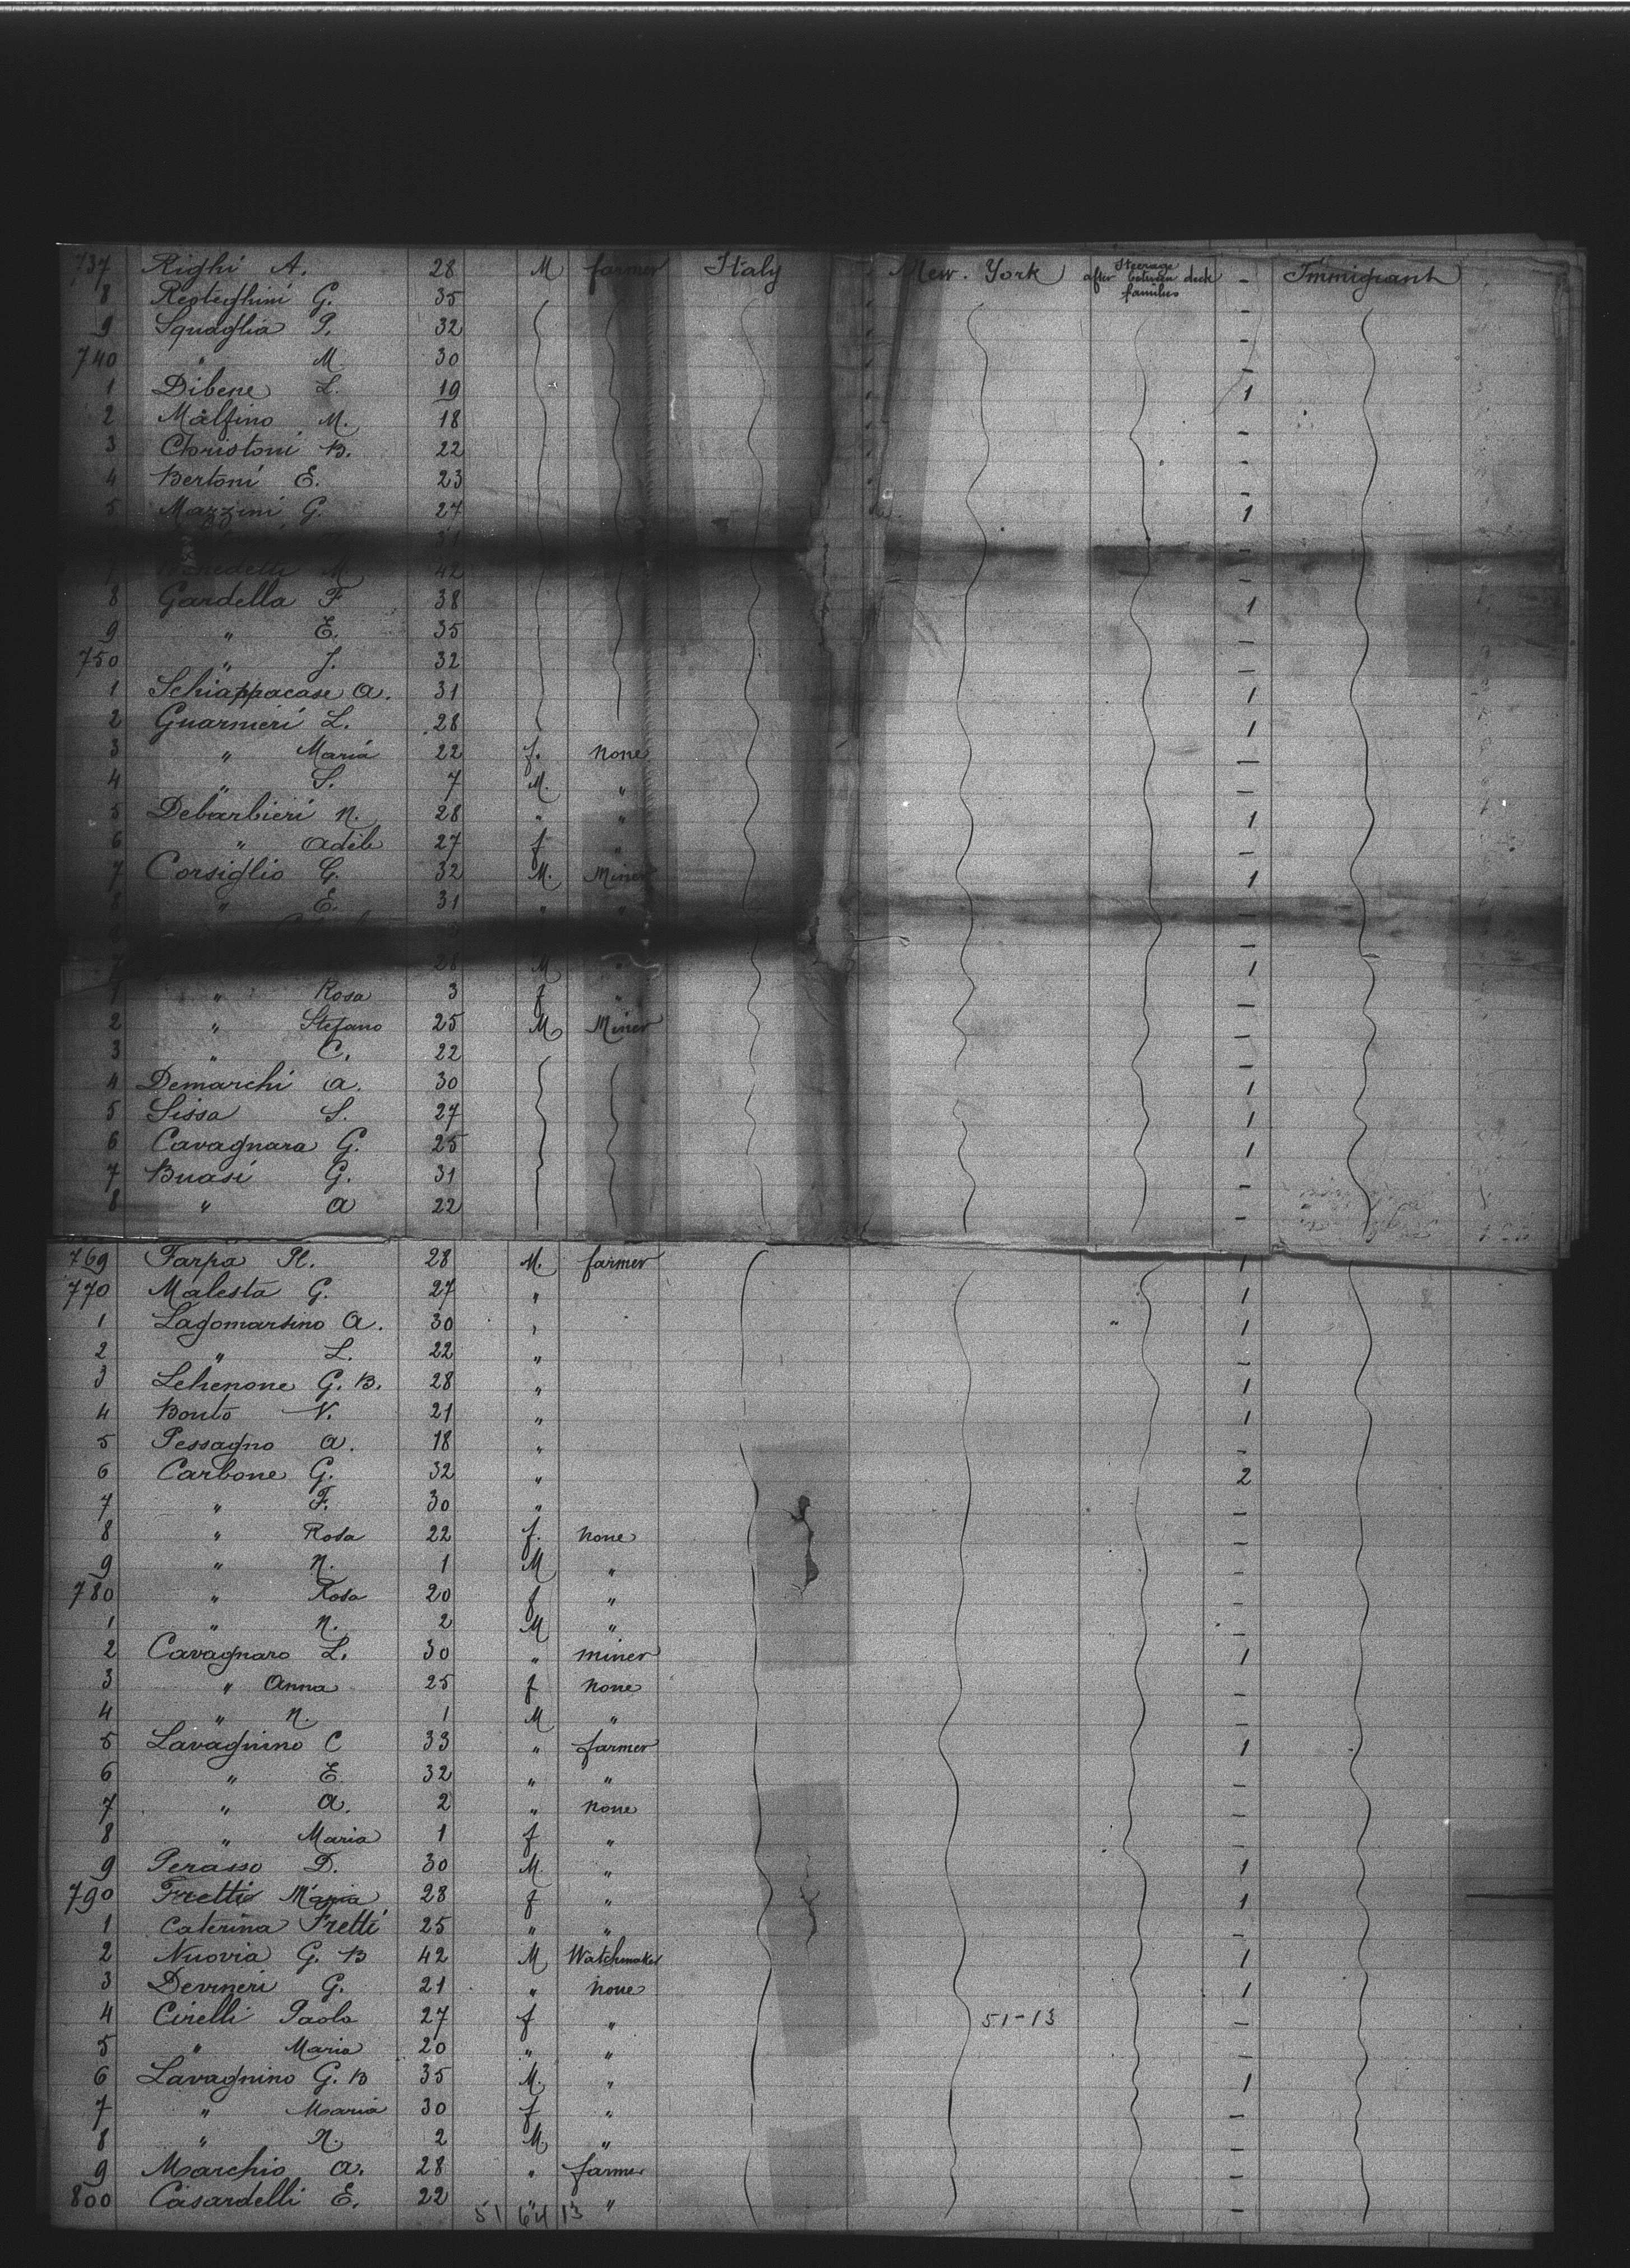 737 Righi A. 28 M farmer Italy New. York Steerage after between deck families - Immigrant
8 Resteghini G. 35 -
9 Squaglia P. 32 -
740 " M 30 -
1 Dibene L. 19 1
2 Malfino M. 18 -
3 Christoni B. 22 -
4 Bertoni E. 23 -
5 Mazzini G. 27 1
31 -
M 42 -
8 Gardella F 38 1
9 " E. 35 -
750 " J. 32 -
1 Schiappacase A. 31 1
2 Guarnieri L. 28 1
3 " Maria 22 f. none -
4 " S. 7 M. " -
5 Debarbieri N. 28 " " 1
6 " Adele 27 f " -
7 Corsiglio G. 32 M. Miner 1
" E. 31 " " -
-
28 M " 1
1 " Rosa 3 f " -
2 " Stefano 25 M Miner -
3 " C. 22 -
4 Demarchi A. 30 1
5 Sissa S. 27 1
6 Cavagnara G. 25 1
7 Buasi G. 31 -
8 " A 22 -
769 Farpa Pl. 28 M. farmer 1
770 Malesta G. 27 " 1
1 Lagomarsino A. 30 " " 1
2 " L. 22 " -
3 Lehenone G. B. 28 " 1
4 Bonto V. 21 " 1
5 Pessagno A. 18 " -
6 Carbone G. 32 " 2
7 " F. 30 " -
8 " Rosa 22 f. none -
9 " N. 1 M " -
780 " Rosa 20 f " -
1 " N. 2 M " -
2 Cavagnaro L. 30 " miner 1
3 " Anna 25 f none -
4 " N. 1 M " -
5 Lavagnino C 33 " farmer 1
6 " E 32 " " -
7 " A. 2 " none -
8 " Maria 1 f " -
9 Perasso D. 30 M. " 1
790 Fretti Maria 28 f " 1
1 Caterina Fretti 25 " " -
2 Nuovia G. B 42 M Watchmaker 1
3 Devrneri G. 21 " none 1
4 Cirelli Paolo 27 f " 51-13 -
5 " Maria 20 " " -
6 Lavagnino G. B 35 M. " 1
7 " Maria 30 f " -
8 " N. 2 M. " -
9 Marchio A. 28 " farmer -
800 Casardelli E. 22 " " -
51 64 13